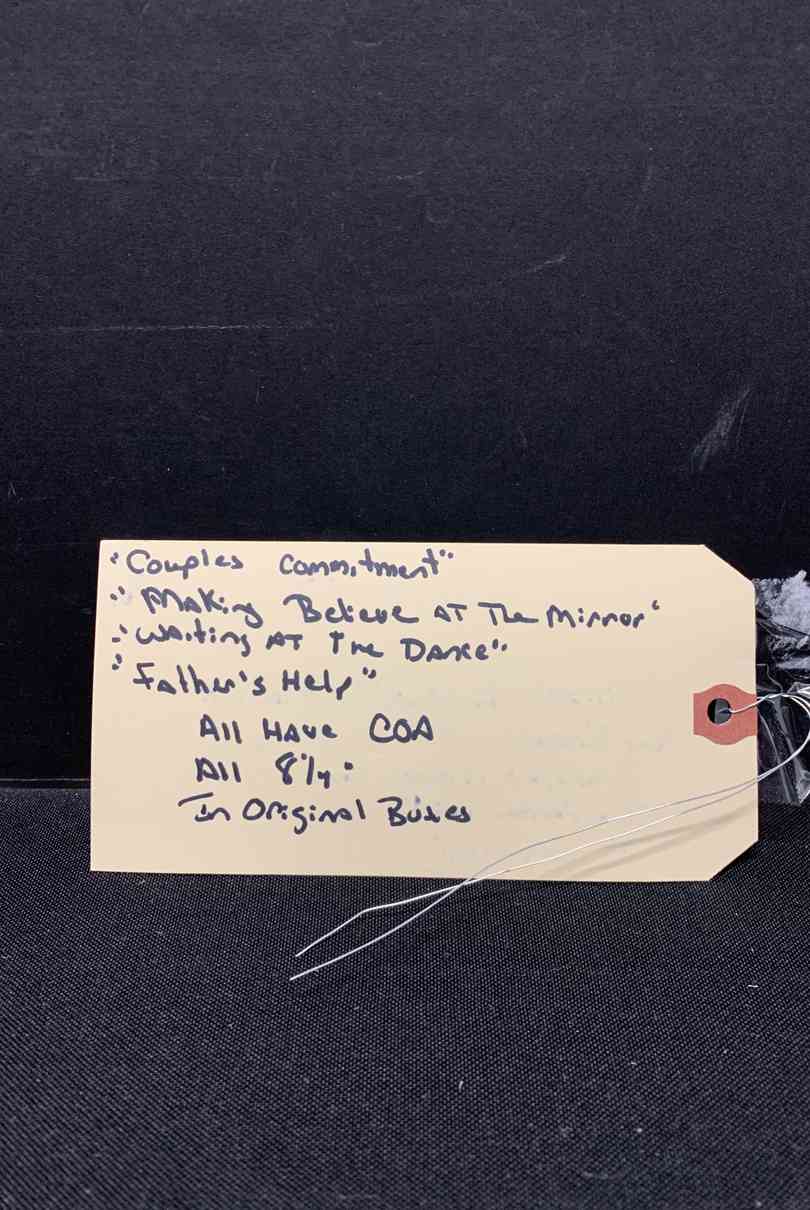 "Couples Commitment"
"Making Believe AT The Mirror"
"Waiting AT The Dance"
"Father's Help"
All Have COA
All 8 1/4"
In Original Boxes